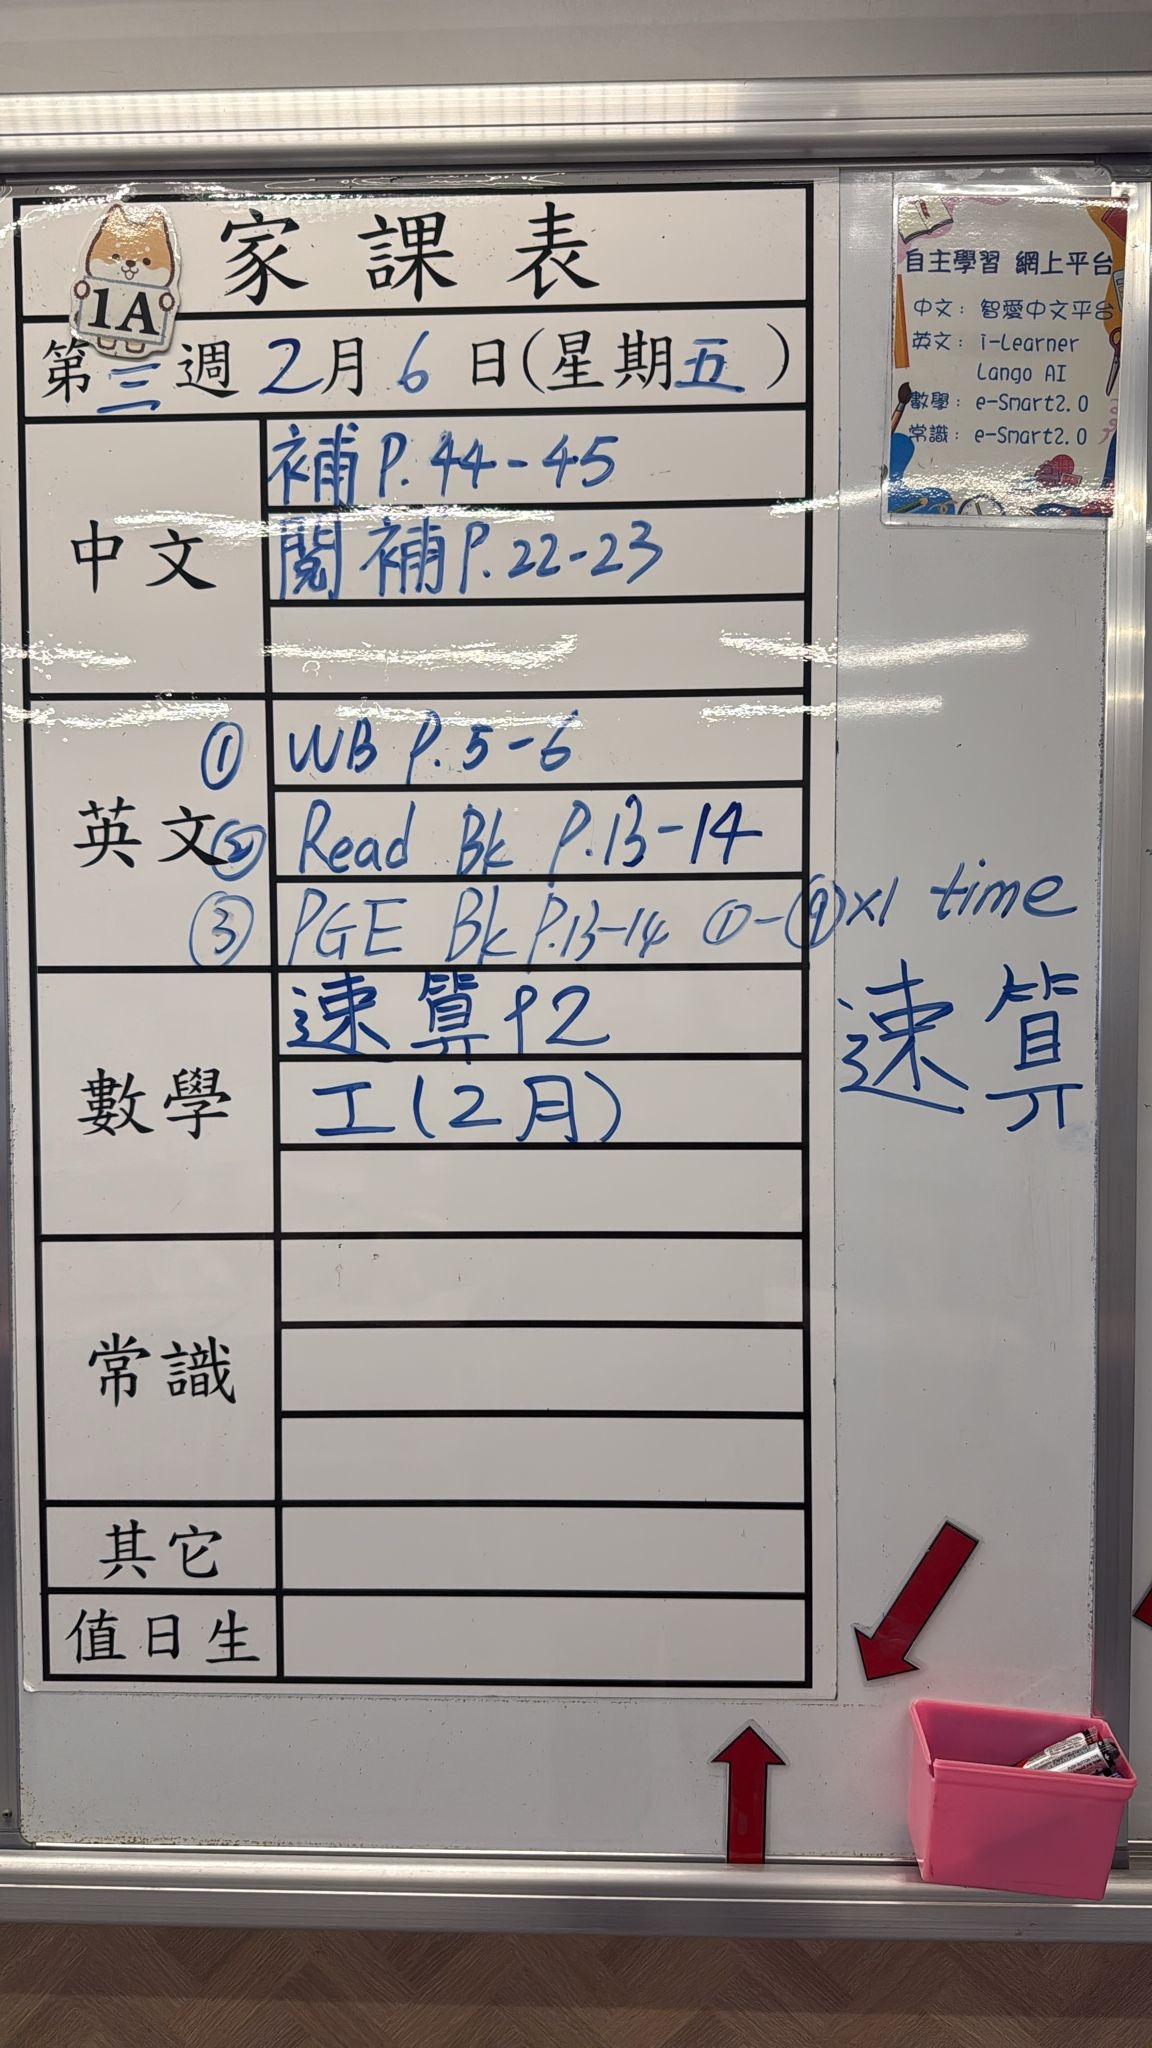 家課表
1A
第三週2月6日(星期五)
中文
補P.44-45
閱補P.22-23
英文
① WB P.5-6
② Read Bk P.13-14
③ PGE Bk P.13-14 ①-⑨x1 time
數學
速算P2
工(2月)
速算
常識
其它
值日生
自主學習 網上平台
中文: 智愛中文平台
英文: i-Learner
Lango AI
數學: e-Smart2.0
常識: e-Smart2.0